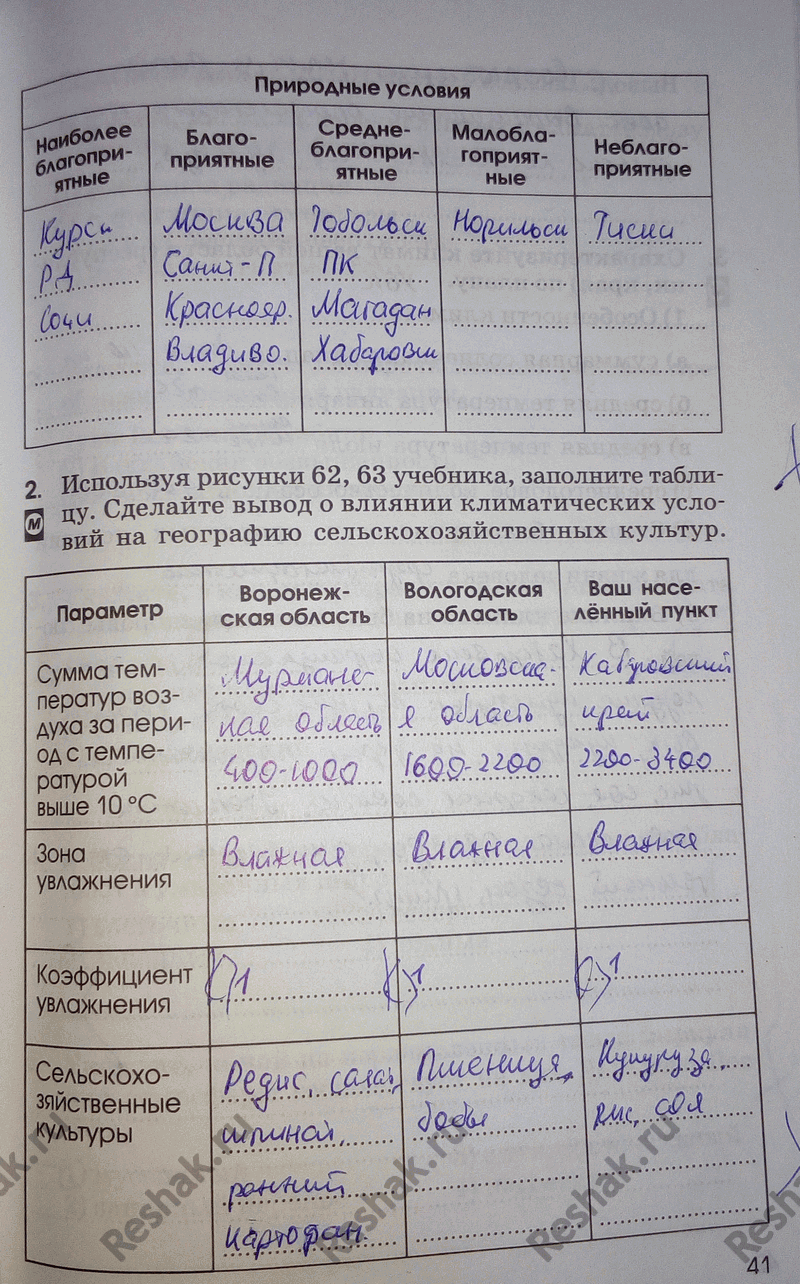 Природные условия
Наиболее благоприятные
Благоприятные
Среднеблагоприятные
Малоблагоприятные
Неблагоприятные
Курск Москва Тобольск Норильск Тикси
РД Санкт-П ПК
Сочи Краснояр. Магадан
Владиво. Хабаровск
2. Используя рисунки 62, 63 учебника, заполните табли-
цу. Сделайте вывод о влиянии климатических усло-
вий на географию сельскохозяйственных культур.
Параметр
Воронеж-
ская область
Вологодская
область
Ваш насе-
лённый пункт
Сумма тем-
ператур воз-
духа за пери-
од с темпе-
ратурой
выше 10 °С
Мурманс-
кая область
400-1000
Московска-
я область
1600-2200
Хабаровский
край
2200-3400
Зона
увлажнения
Влажная
Влажная
Влажная
Коэффициент
увлажнения
К>1
К>1
К>1
Сельскохо-
зяйственные
культуры
Редис, салат,
шпинат,
ранний
картофан.
Пшеница,
бобы
Кукуруза,
рис, соя
Reshak.ru
Reshak.ru
Reshak.ru
Reshak.ru
41